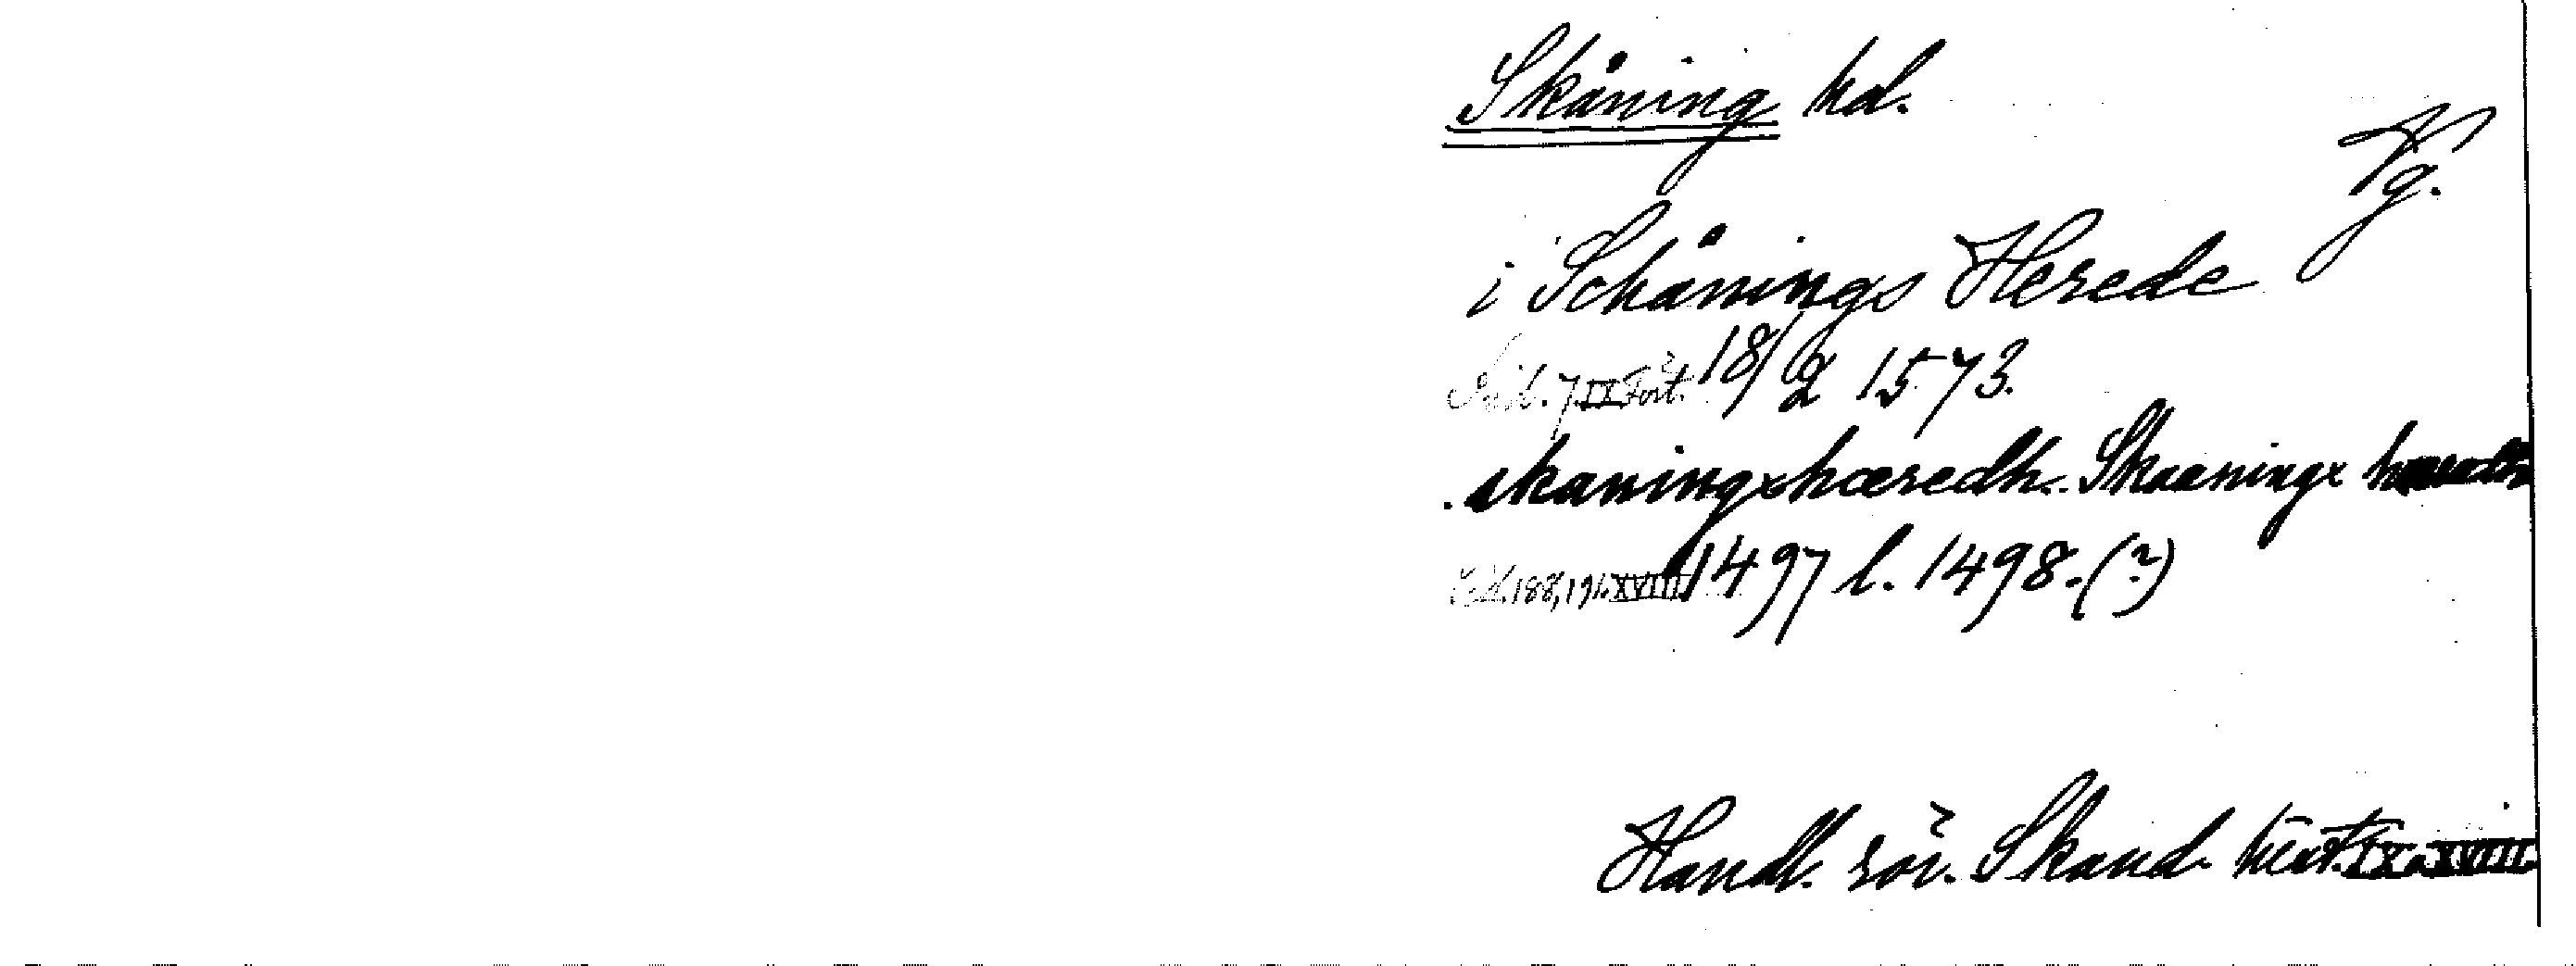 Skåning hd.
Vg.
i Schånings Herede
Sid. 7. IX Fört. 18/2 1573.
skaningxhæredh. Skaaningx
Sid. 188, 191. XVIII. 1497 l. 1498. (?)
Handl. rör. Skand. hist. IX. XVIII.